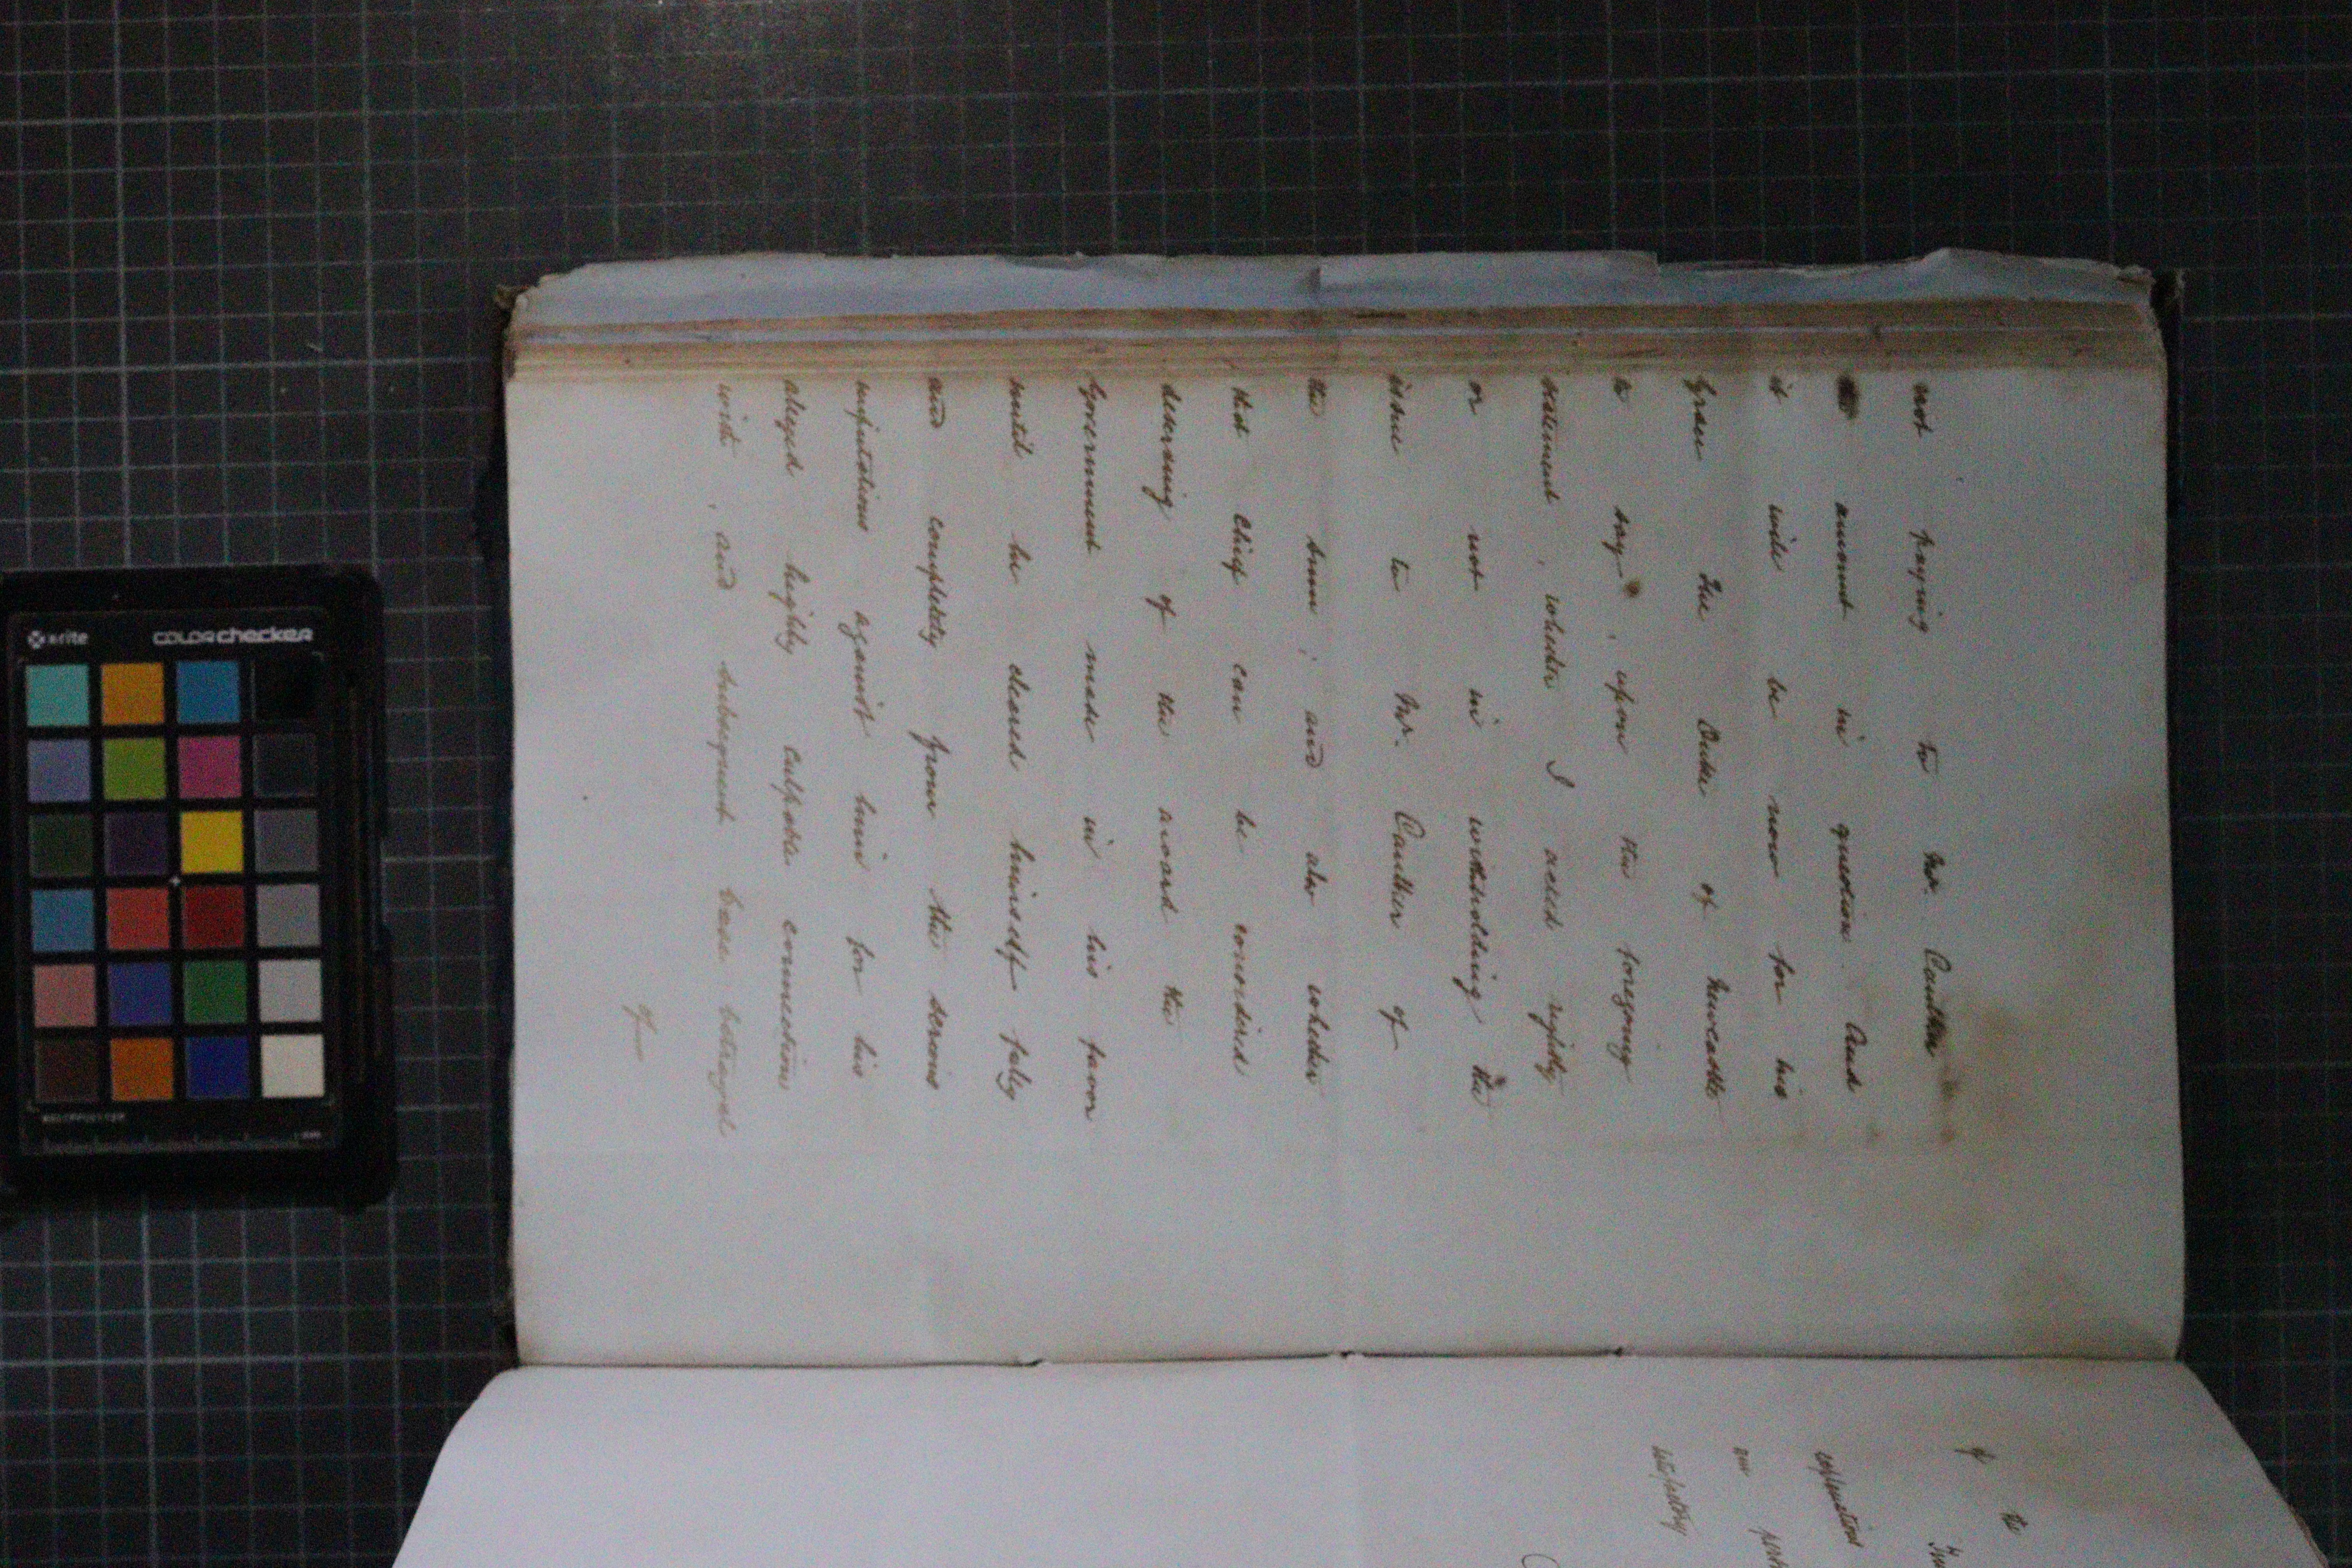 not paying to Mr. Cauther
the amount in question. And
it will be now for his
Grace The Duke of Newcastle
to say, upon the foregoing
statement, whether I acted rightly
or not in withholding the
issue to Mr. Cauther of
the sum; and also whether
that chief can be considered
deserving of the award the
Government made in his favor
until he cleared himself fully
and completely from the serious
imputations against him for his
alleged highly culpable connections
with, and subsequent base betrayal
of
of
to
explanation
our
satisfactory
x-rite
colorchecker